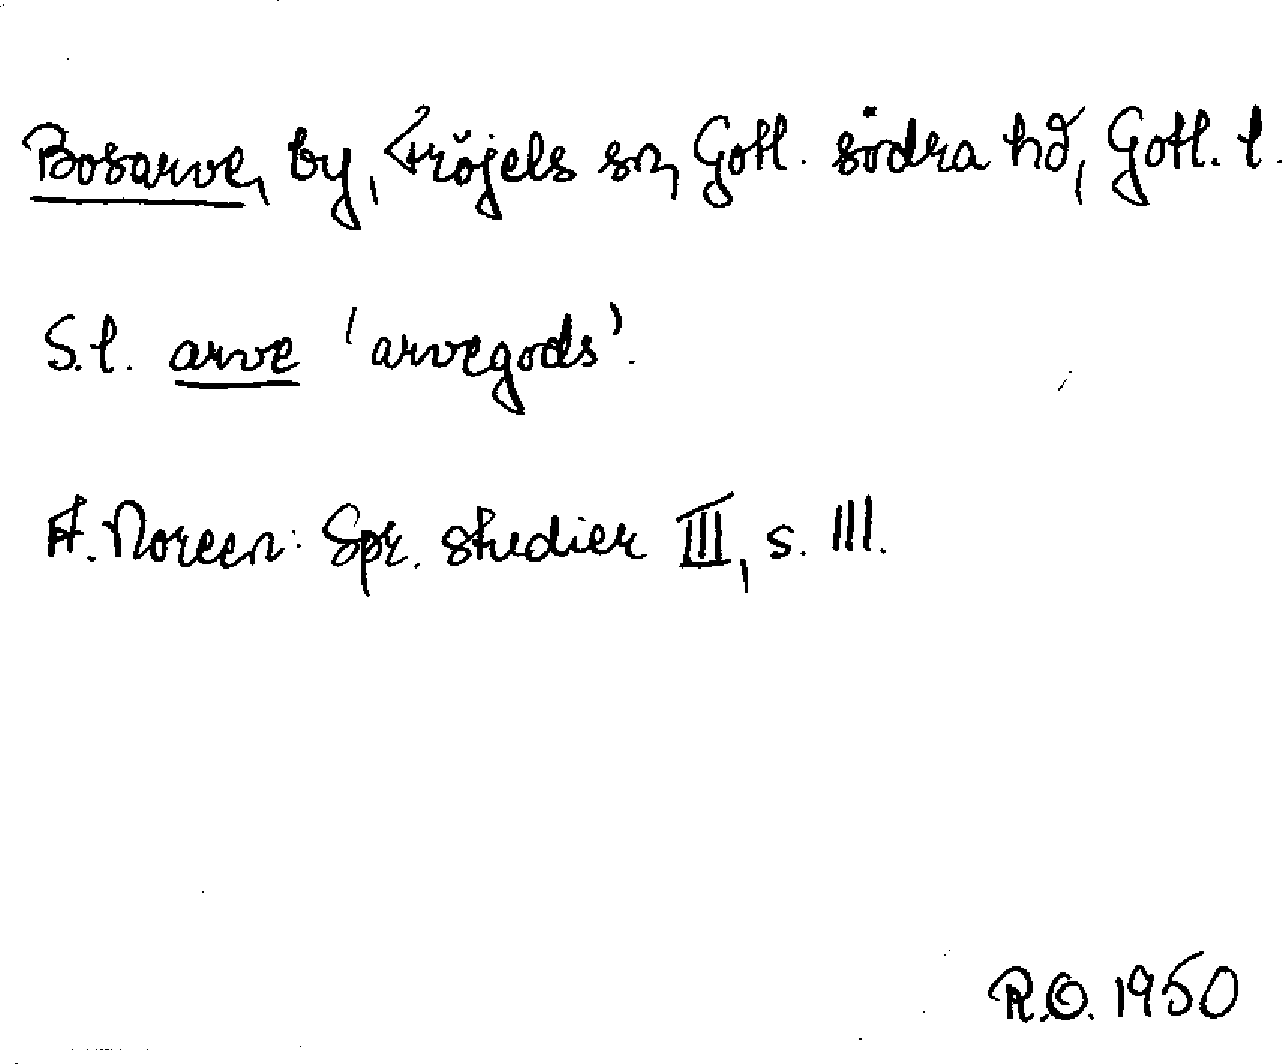 Bosarve, by, Fröjels sn, Gotl. södra hd, Gotl. l.
S.l. arve 'arvegods'.
A. Noreen: Spr. studier III, s. 111.
R.O. 1950